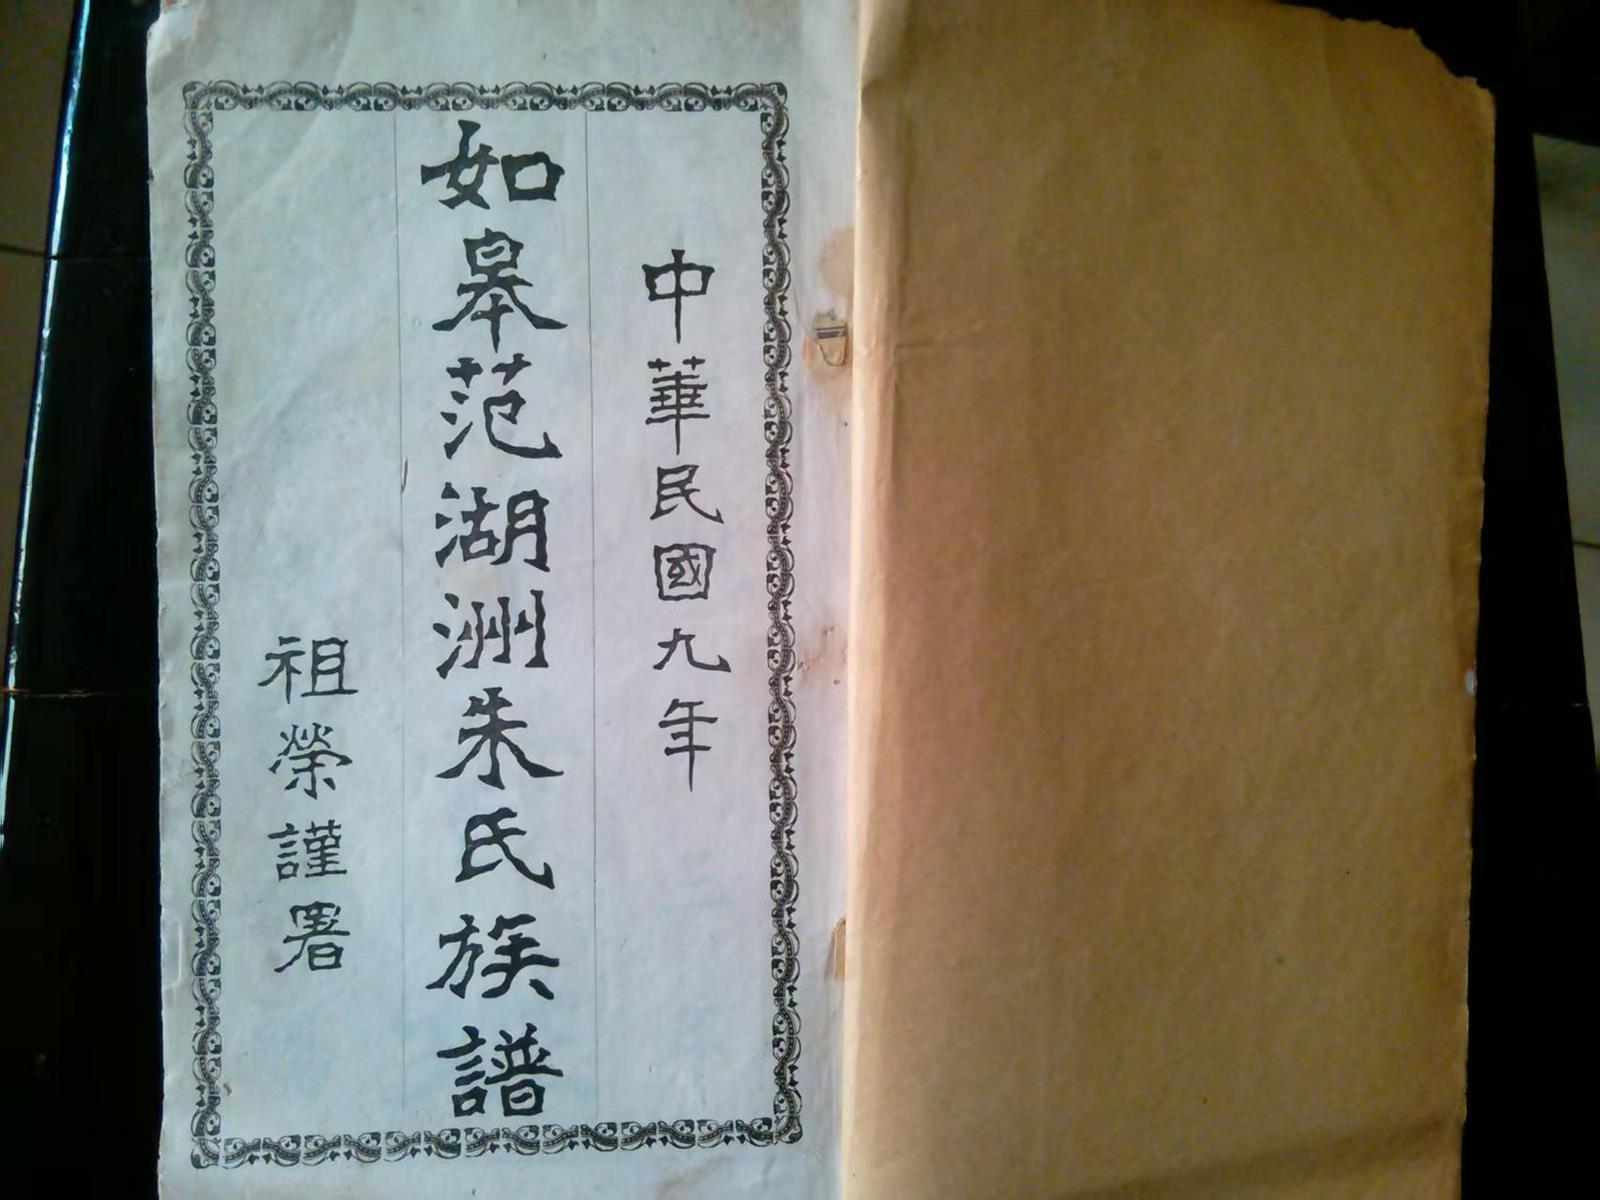 中華民國九年
如皋范湖洲朱氏族譜
祖榮謹署